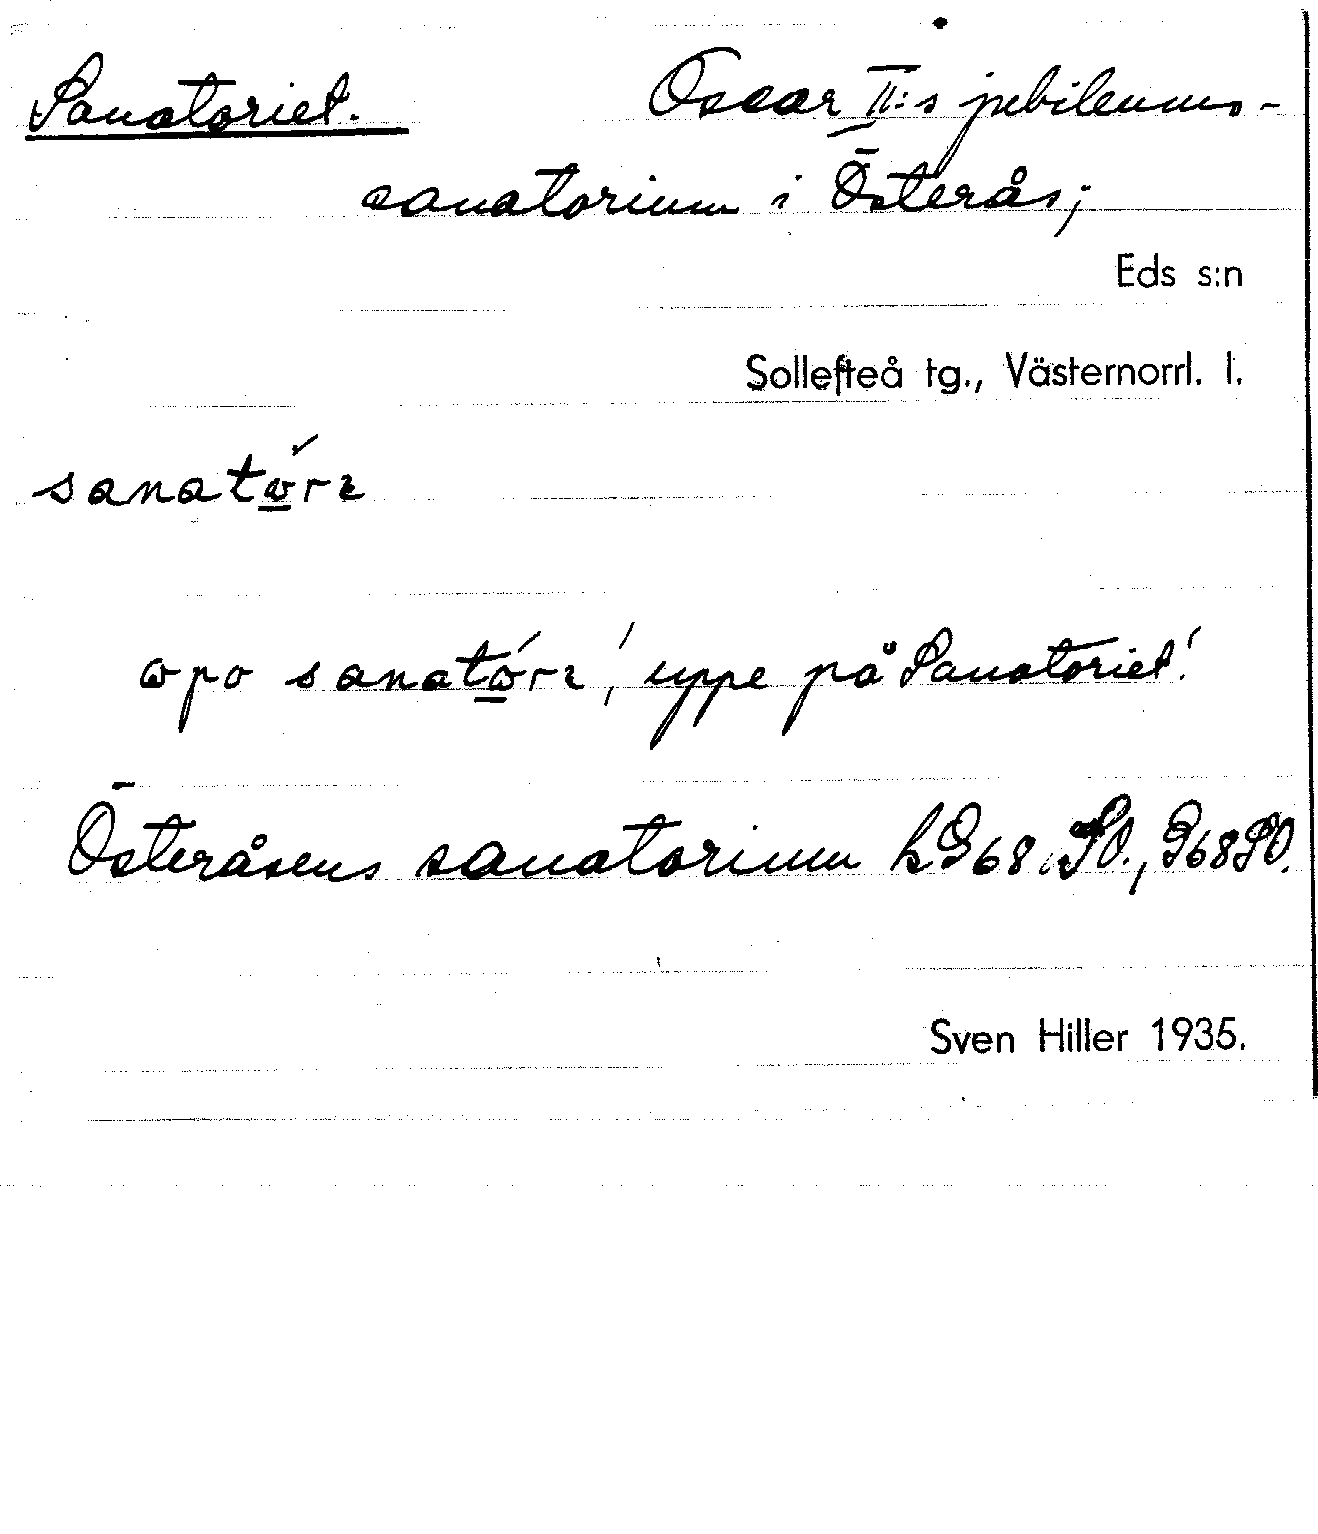 Sanatoriet. Oscar II:s jubileums-
sanatorium i Österås;
Eds s:n
Sollefteå tg., Västernorrl. l.
sanatórɩ
ɷpo sanatórɩ, 'uppe på Sanatoriet'
Österåsens sanatorium hG68 SO., G68SO.
Sven Hiller 1935.